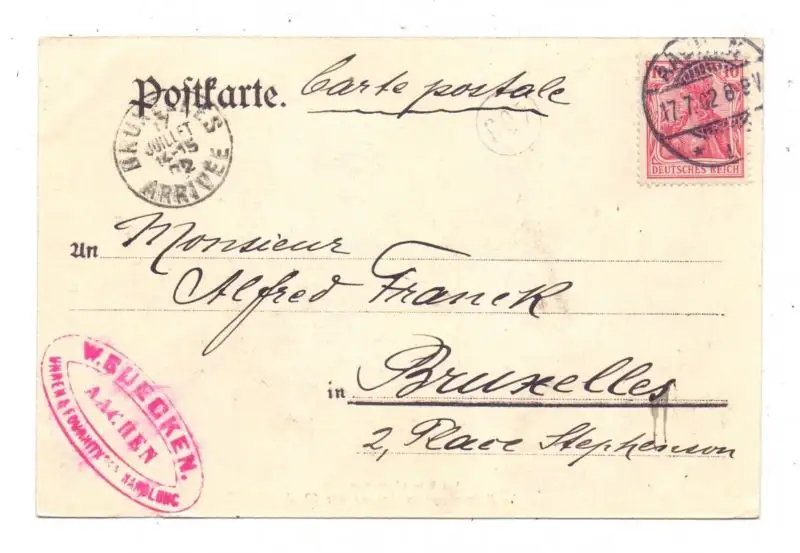 Postkarte. Carte postale
10 10
DEUTSCHES REICH
AACHEN
17.7.02 8-9V
* 1
BRUXELLES
17
JUILLET
14-15
02
ARRIVÉE
An Monsieur
Alfred Franck
in Bruxelles
2, Place Stephenson
W. BUECKEN.
AACHEN
UHREN & FOURNITUREN HANDLUNG